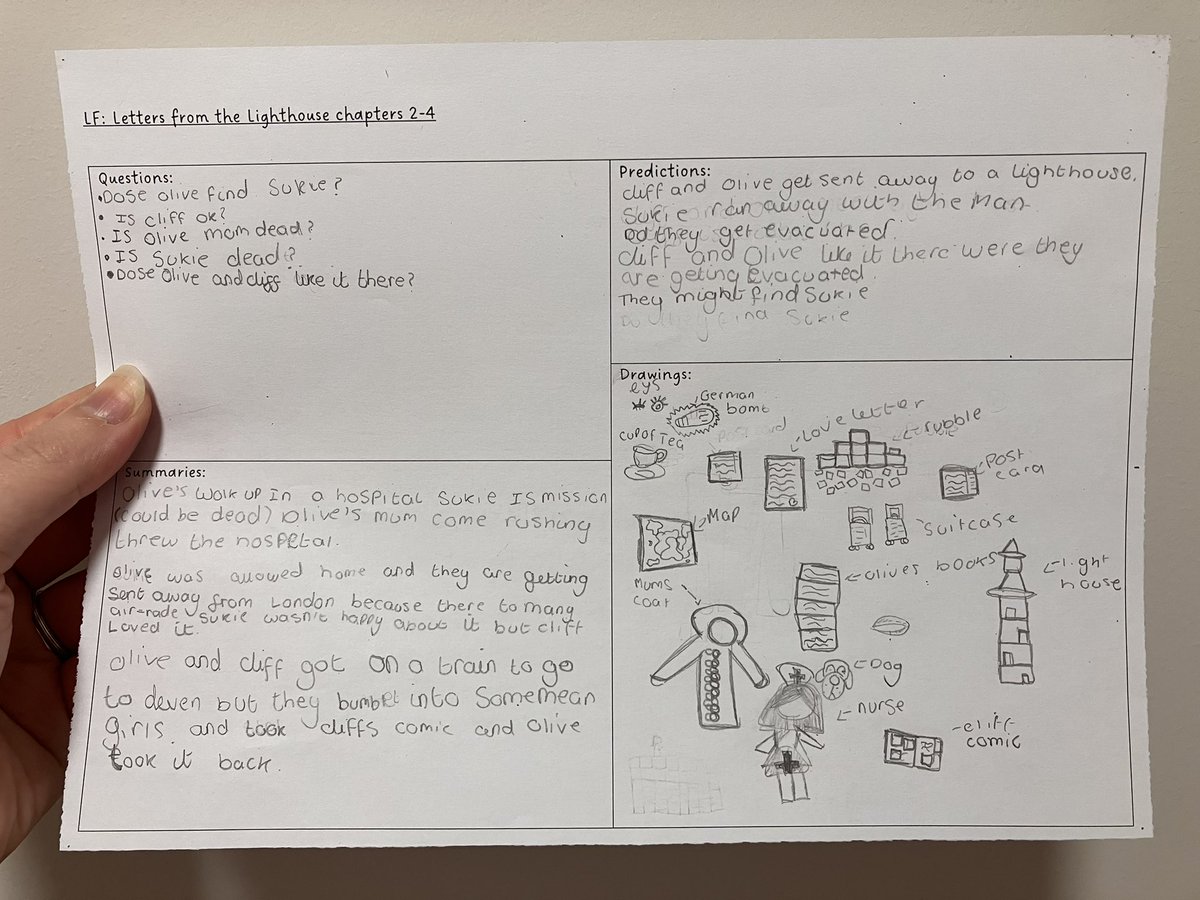 LF: Letters from the Lighthouse chapters 2-4
Questions:
•Dose olive find Sukie?
• Is cliff ok?
• Is Olive mom dead?
• Is Sukie dead?
• Dose Olive and cliff like it there?
Predictions:
cliff and olive get sent away to a lighthouse.
Sukie ran away with the Man
Do they get evacuated.
cliff and Olive like it there were they
are geting Evacuated.
They might find Sukie
Do they find Sukie
Summaries:
Olive's Wolk up In a hospital Sukie Is mission
(could be dead) Olive's mum come rushing
threw the hospetal.
olive was allowed home and they are getting
Sent away from London because there to many
air-rade Sukie wasn't happy about it but cliff
Loved it.
Olive and cliff got on a train to go
to deven but they bumbet into Some mean
girls and took cliffs comic and Olive
took it back.
Drawings:
eys
German
bomb
cup of Tea
Love letter
rubble
Post
card
Map
Suitcase
Olives books
Light
house
Mums
coat
Dog
nurse
cliff
comic